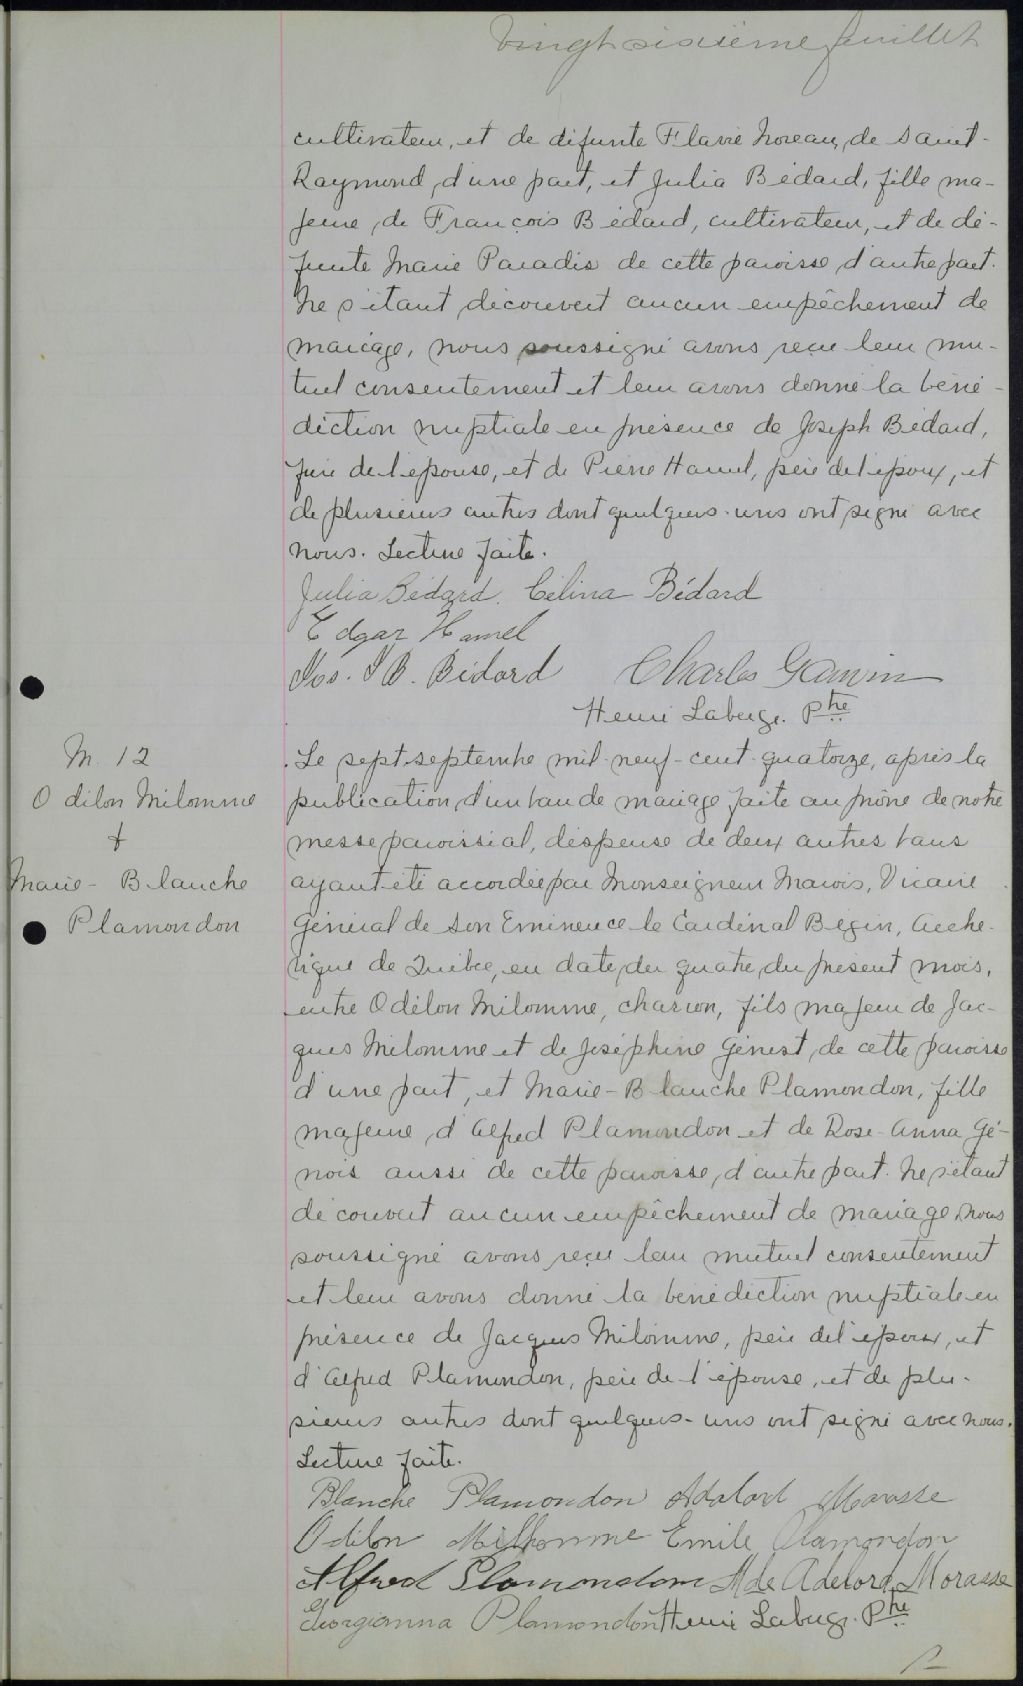 Vingt sixième feuillet
cultivateur, et de défunte Flavie Noreau, de Saint-
Raymond, d'une part, et Julia Bédard, fille ma-
jeure, de François Bédard, cultivateur, et de dé-
funte Marie Paradis de cette paroisse, d'autre part.
Ne s'étant découvert aucun empêchement de
mariage, nous soussigné avons reçu leur mu-
tuel consentement et leur avons donné la béné-
diction nuptiale en présence de Joseph Bédard,
frère de l'épouse, et de Pierre Hamel, père de l'époux, et
de plusieurs autres dont quelques-uns ont signé avec
nous. Lecture faite.
Julia Bédard. Célina Bédard
Edgar Hamel
Jos. I B. Bédard Charles Gauvin
Henri Laberge. Ptre
M. 12
Odilon Milomme
&
Marie-Blanche
Plamondon
Le sept septembre mil-neuf-cent-quatorze, après la
publication d'un ban de mariage faite au prône de notre
messe paroissial, dispense de deux autres bans
ayant été accordée par Monseigneur Marois, Vicaire
Général de Son Eminence le Cardinal Bégin, Arche-
vêque de Québec, en date du quatre du présent mois,
entre Odilon Milomme, charron, fils majeur de Jac-
ques Milomme et de Joséphine Genest, de cette paroisse
d'une part, et Marie-Blanche Plamondon, fille
majeure, d'Alfred Plamondon et de Rose-Anna Gé-
nois aussi de cette paroisse, d'autre part. Ne s'étant
découvert aucun empêchement de mariage, nous
soussigné avons reçu leur mutuel consentement
et leur avons donné la bénédiction nuptiale en
présence de Jacques Milomme, père de l'époux, et
d'Alfred Plamondon, père de l'épouse, et de plu-
sieurs autres dont quelques-uns ont signé avec nous.
Lecture faite.
Blanche Plamondon Adalord Morasse
Odilon Milhomme Emile Plamondon
Alfred Plamondon Mde Adelord Morasse
Georgianna Plamondon Henri Laberge. Ptre